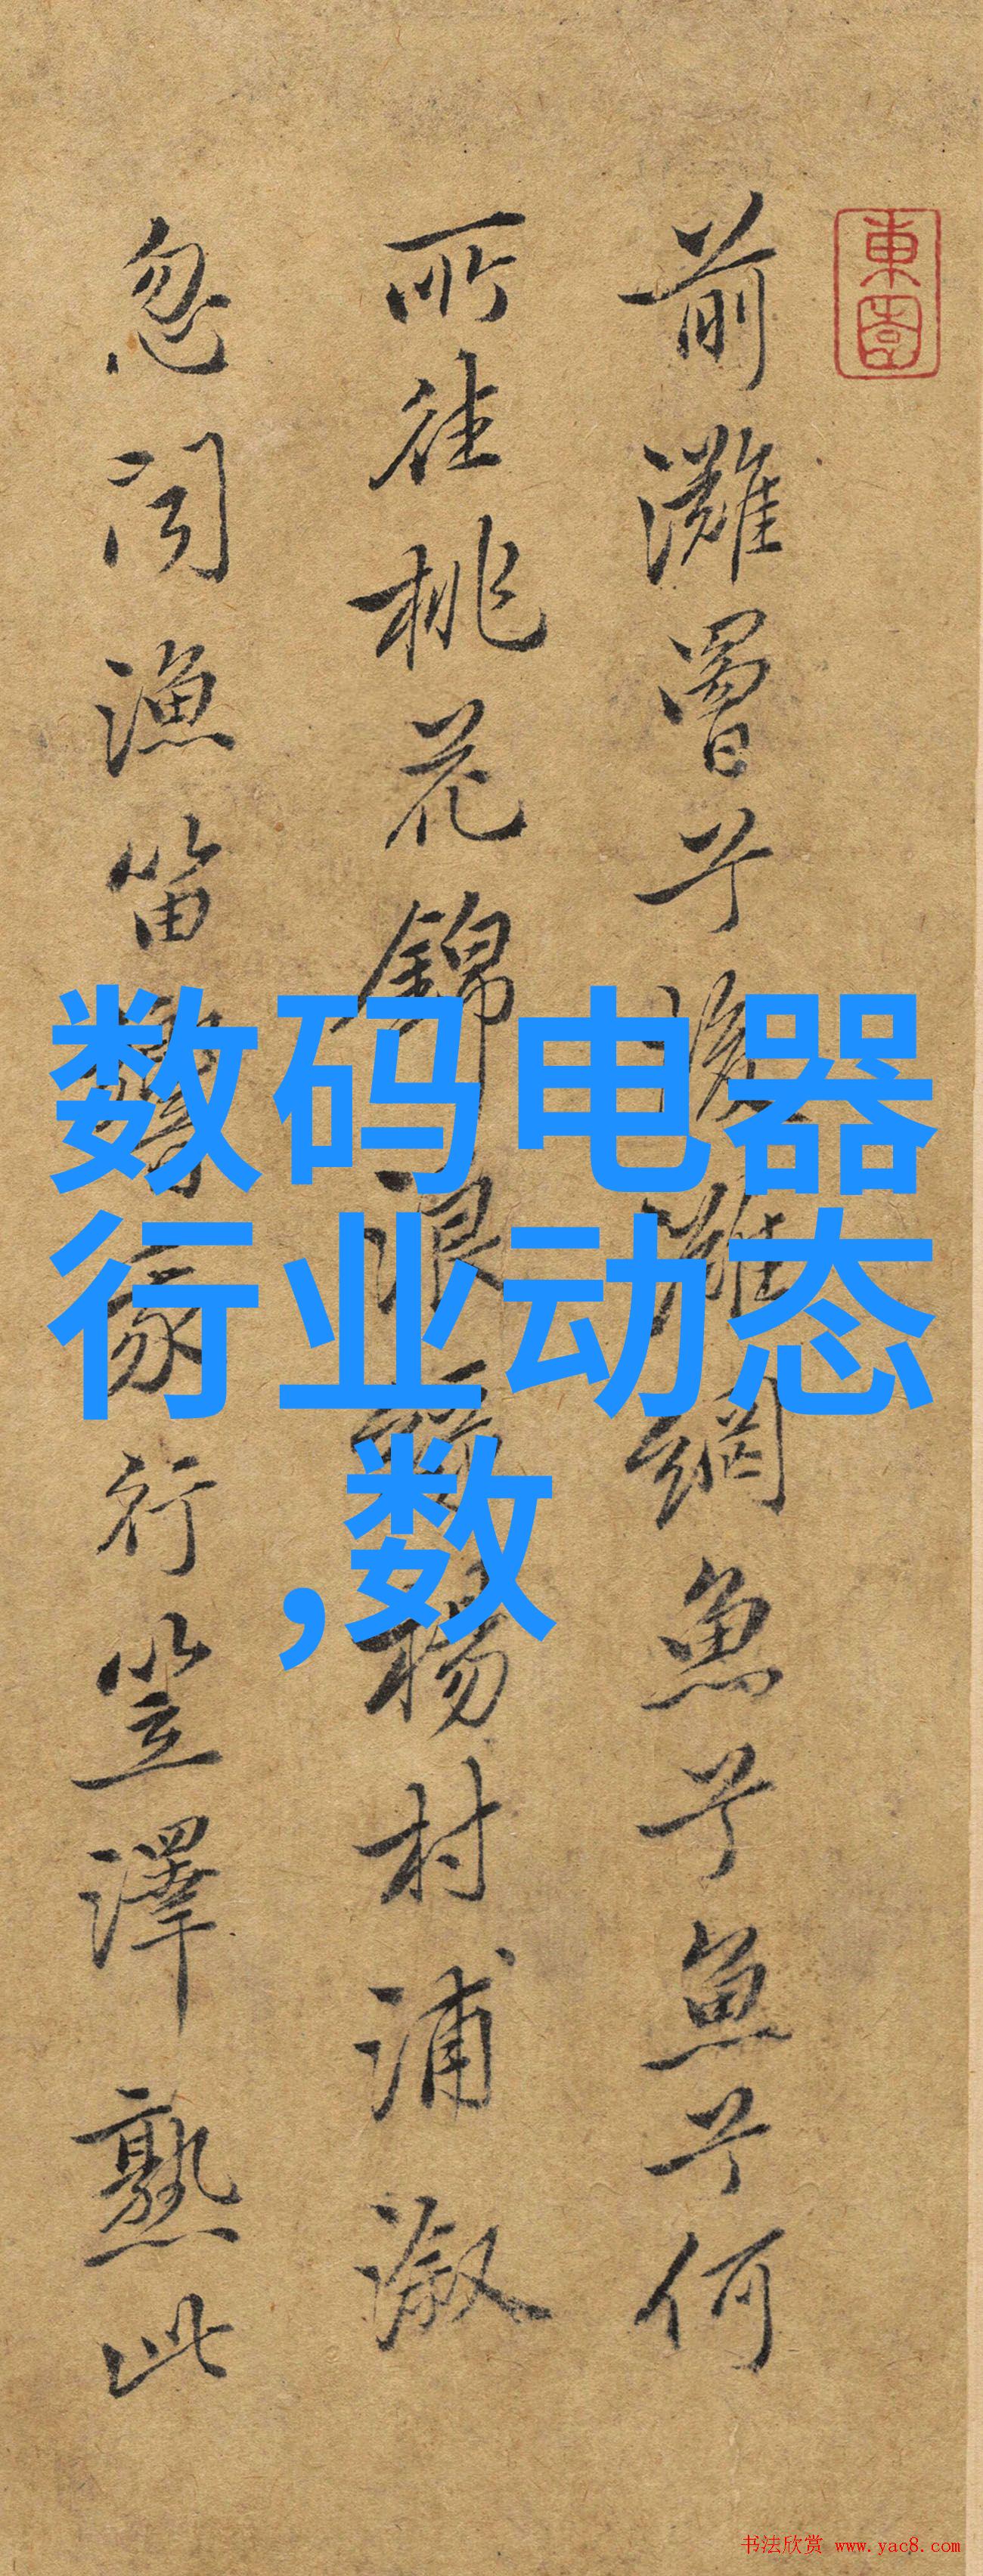 東園
前灘罾兮後灘網魚兮魚兮何
所往桃花錦浪綠楊村浦溆
忽聞漁笛響家行笠澤熟此
数码电器
行业动态
,数
书法欣赏 www.yac8.com